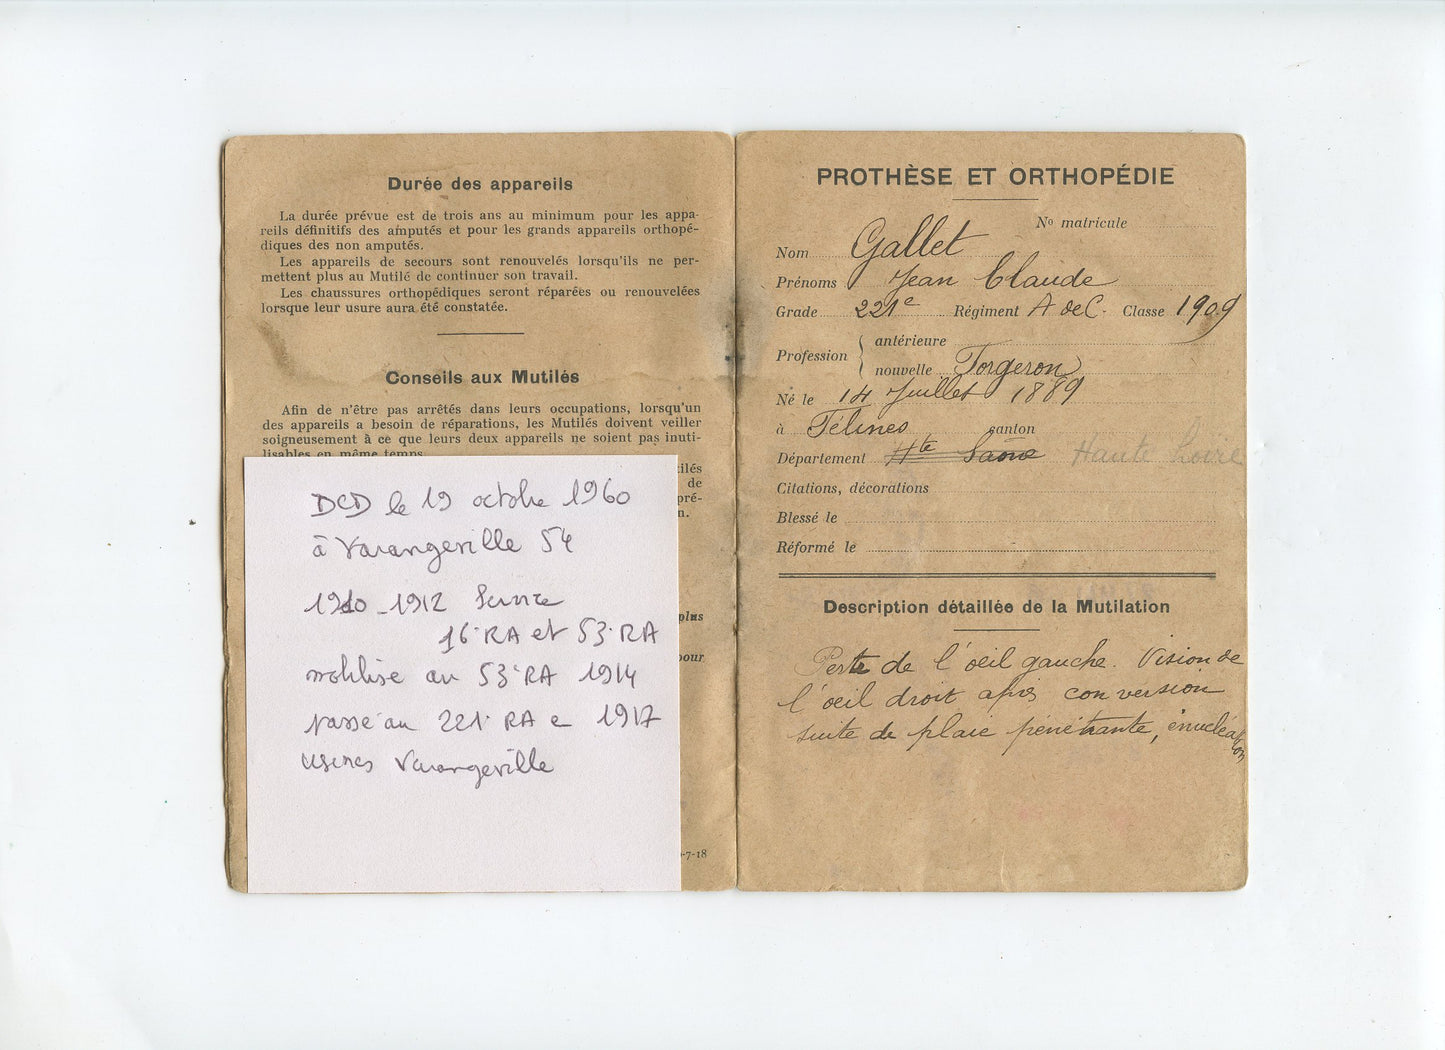 Durée des appareils
La durée prévue est de trois ans au minimum pour les appa-
reils définitifs des amputés et pour les grands appareils orthopé-
diques des non amputés.
Les appareils de secours sont renouvelés lorsqu'ils ne per-
mettent plus au Mutilé de continuer son travail.
Les chaussures orthopédiques seront réparées ou renouvelées
lorsque leur usure aura été constatée.
Conseils aux Mutilés
Afin de n'être pas arrêtés dans leurs occupations, lorsqu'un
des appareils a besoin de réparations, les Mutilés doivent veiller
soigneusement à ce que leurs deux appareils ne soient pas inuti-
lisables en même temps.
tilés
de
pré-
n.
plus
pour
-7-18
DCD le 19 octobre 1960
à Varangeville 54
1910-1912 Service
16° RA et 53° RA
mobilisé au 53° RA 1914
passé au 221° RA e 1917
usines Varangeville
PROTHÈSE ET ORTHOPÉDIE
No matricule
Nom Gallet
Prénoms Jean Claude
Grade 221e Régiment A de C. Classe 1909
Profession antérieure
nouvelle Forgeron
Né le 14 Juillet 1889
à Félines canton
Département Hte Saône Haute Loire
Citations, décorations
Blessé le
Réformé le
Description détaillée de la Mutilation
Perte de l'oeil gauche. Vision de
l'oeil droit après conversion
suite de plaie pénétrante, énucléation